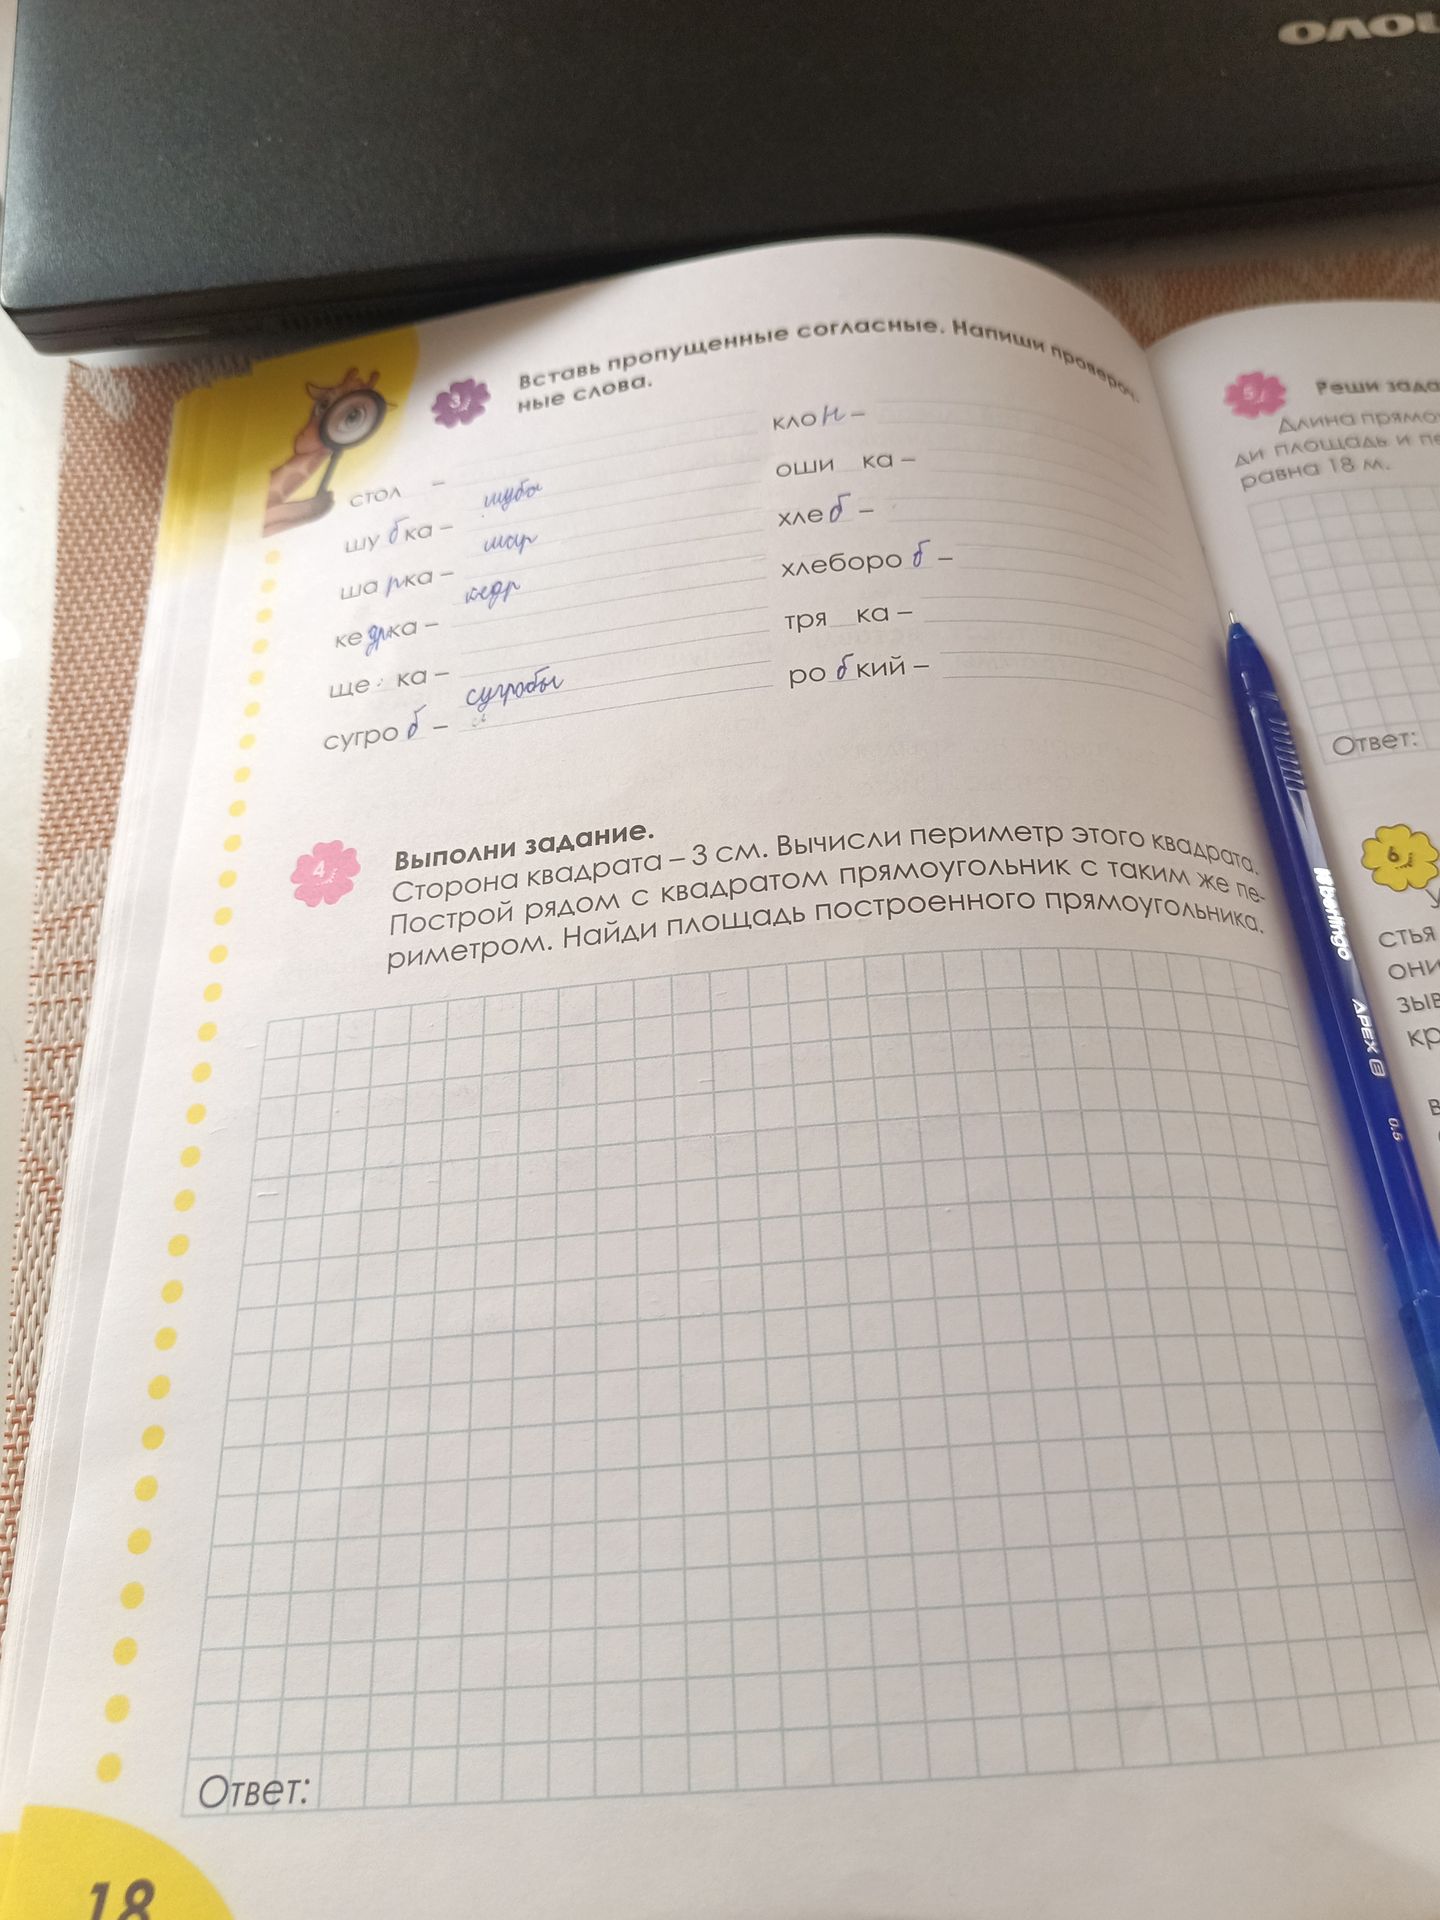 novo
3
Вставь пропущенные согласные. Напиши провероч-
ные слова.
стол –
шубка – шубы
шарка – шар
кедрка – кедр
ще ка –
сугроб – сугробы
клон –
оши ка –
хлеб –
хлебороб –
тря ка –
робкий –
4
Выполни задание.
Сторона квадрата – 3 см. Вычисли периметр этого квадрата.
Построй рядом с квадратом прямоугольник с таким же пе-
риметром. Найди площадь построенного прямоугольника.
Ответ:
18
5
Реши зада
Длина прямоу
ди площадь и пе
равна 18 м.
Ответ:
6
У
стья
они
зыв
кр
в
Nberingo APEX E 0.5